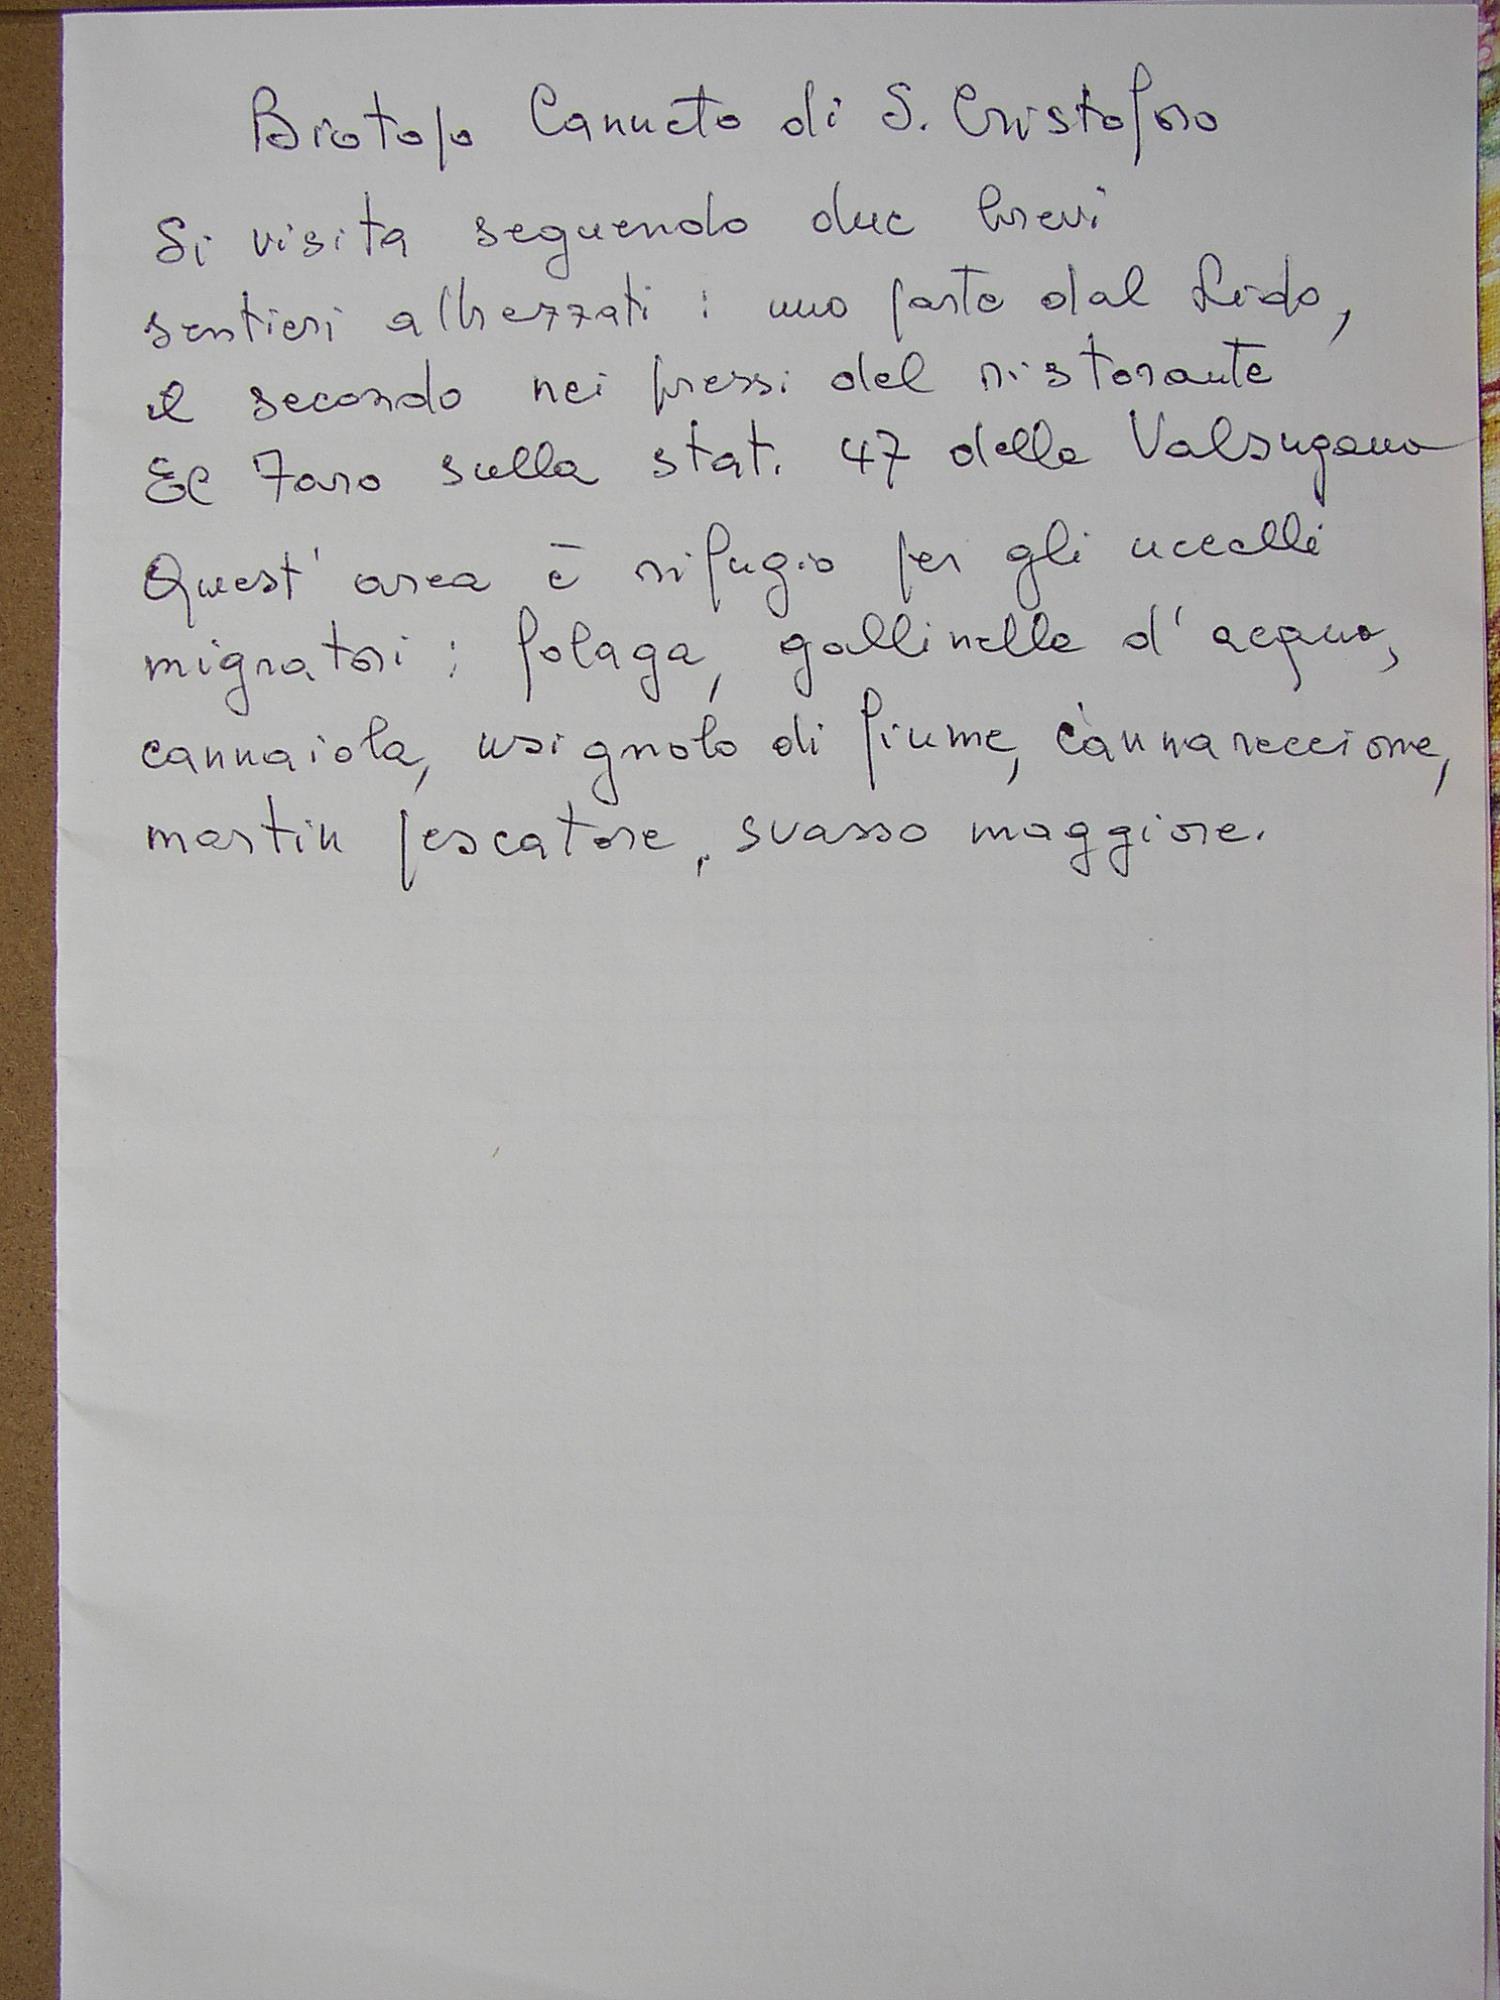 Biotopo Canneto di S. Cristoforo
Si visita seguendo due brevi
sentieri attrezzati : uno parte dal Lido,
il secondo nei pressi del ristorante
El Faro sulla stat. 47 della Valsugana
Quest' area è rifugio per gli uccelli
migratori : folaga, gallinella d' acqua,
cannaiola, usignolo di fiume, cannareccione,
martin pescatore, svasso maggiore.